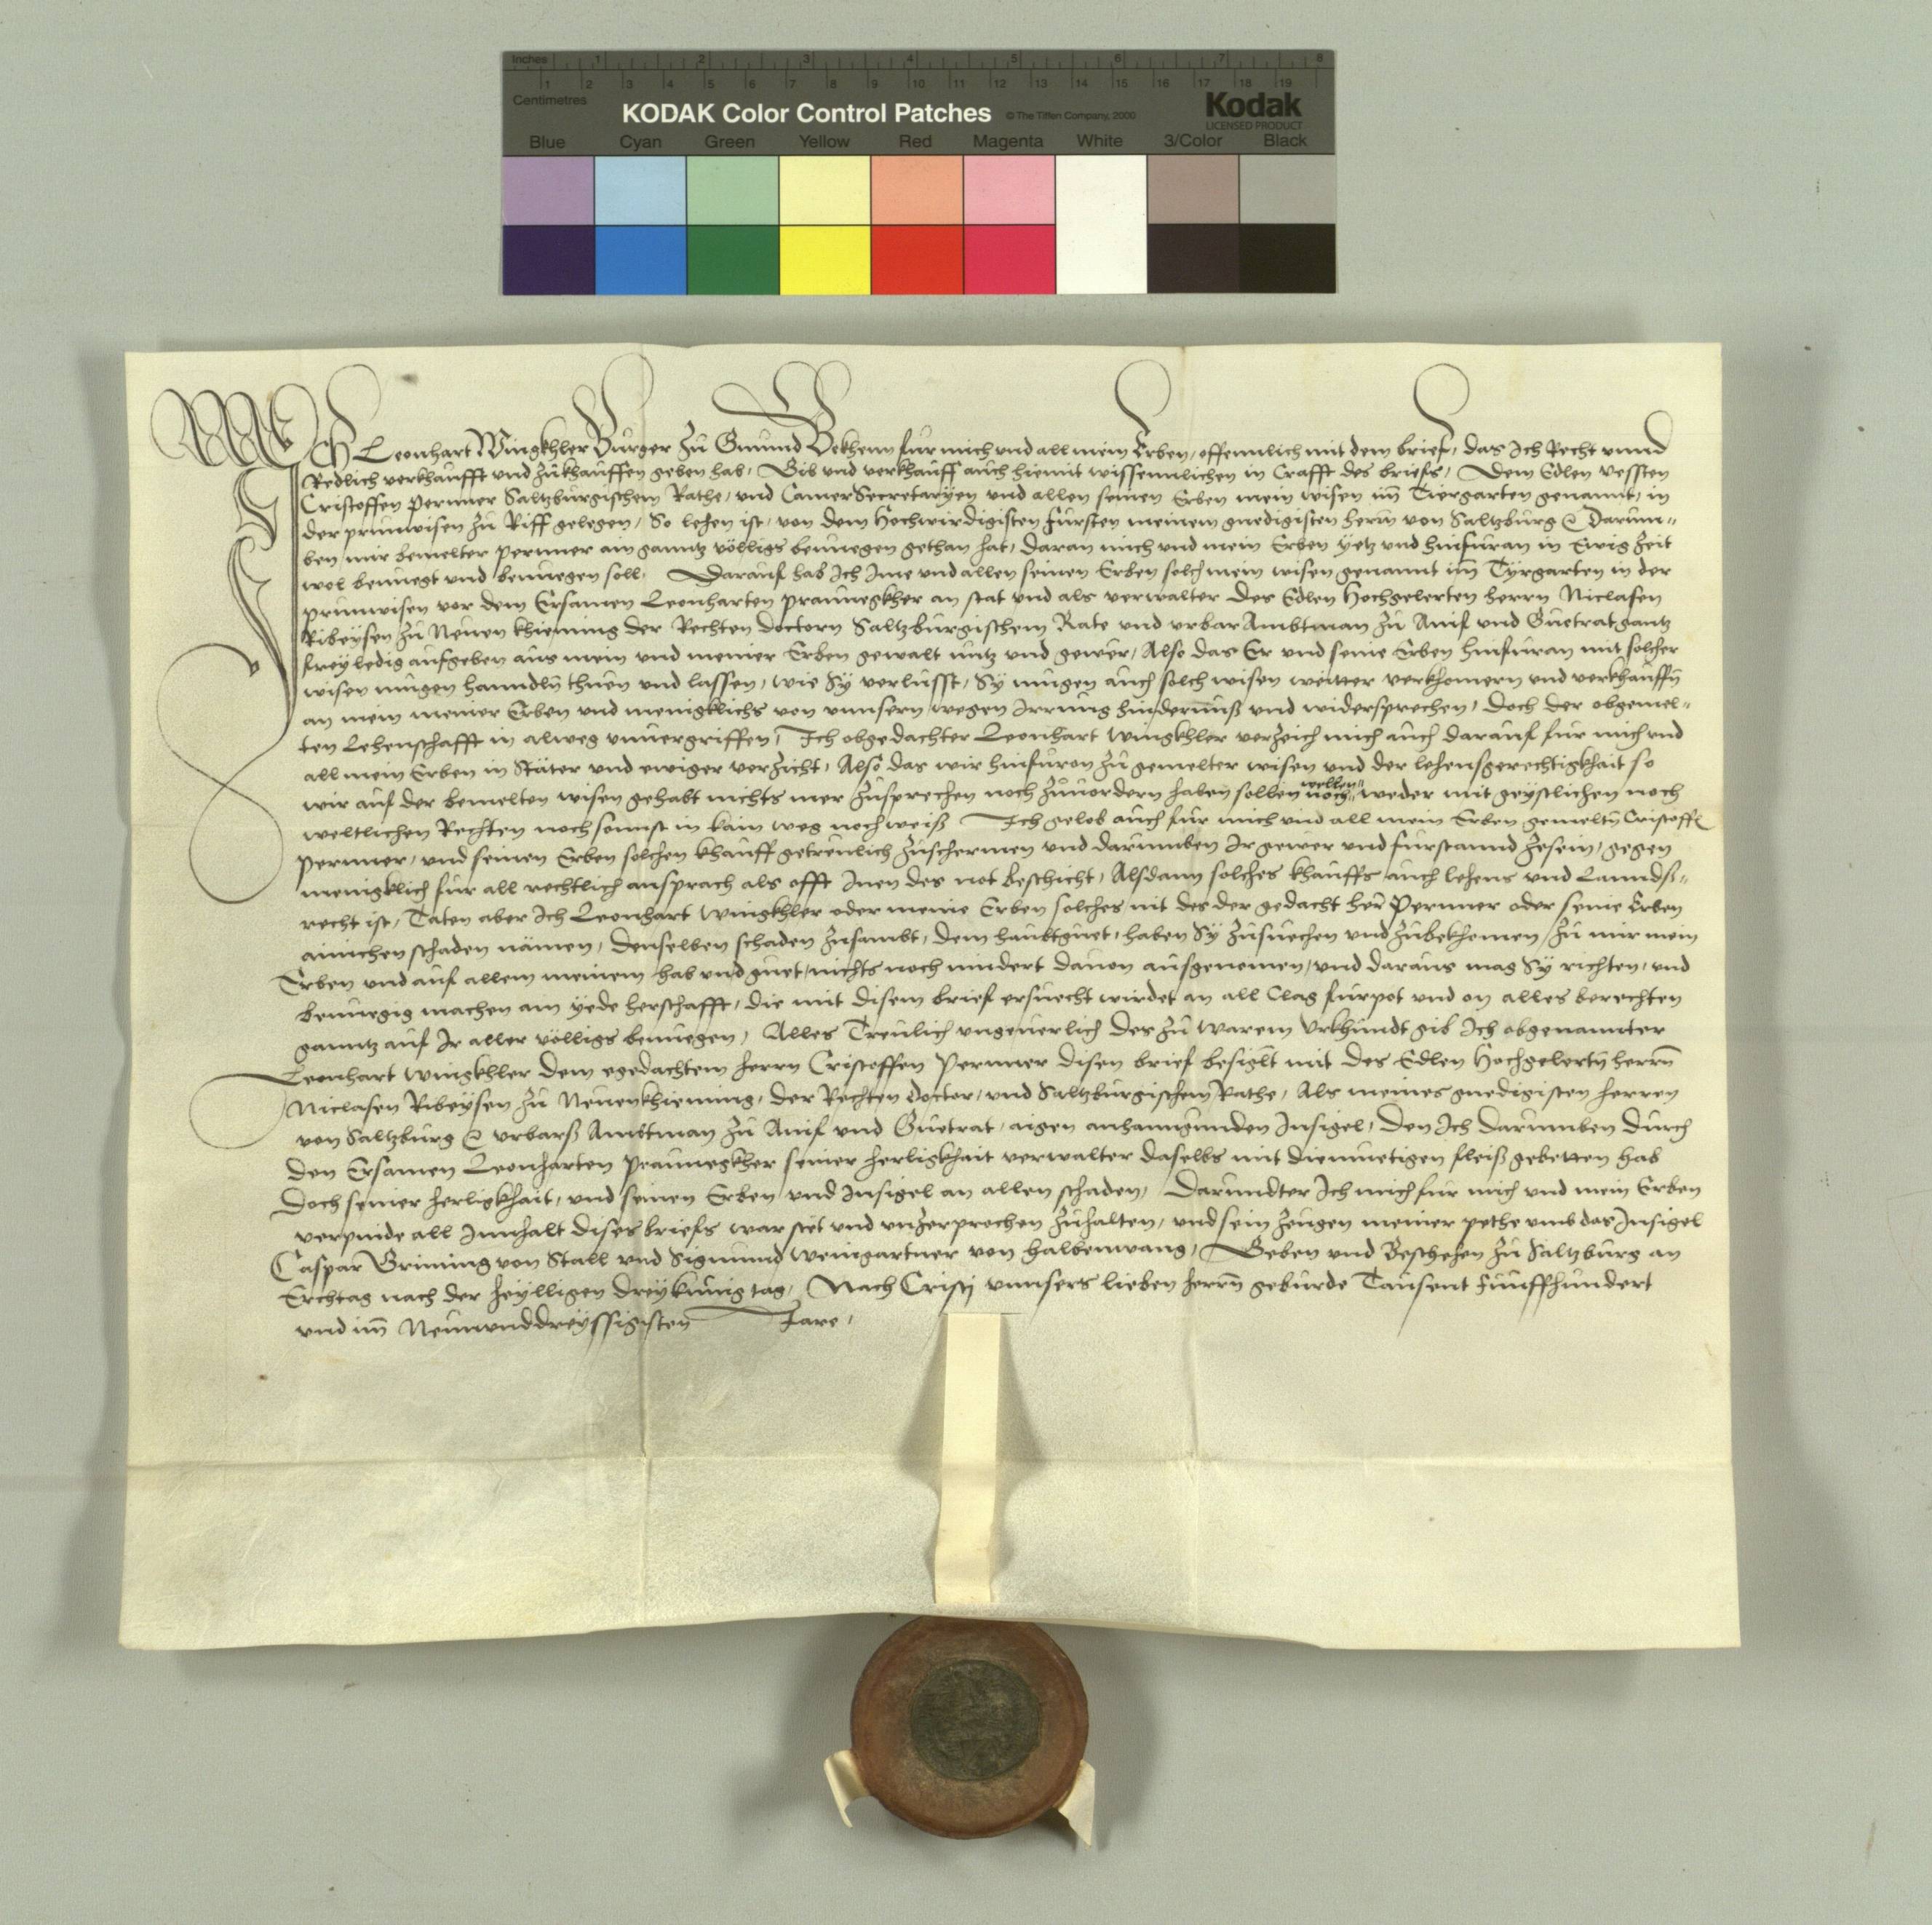 Inches 1 2 3 4 5 6 7 8
1 2 3 4 5 6 7 8 9 10 11 12 13 14 15 16 17 18 19
Centimetres
KODAK Color Control Patches © The Tiffen Company, 2000 Kodak
LICENSED PRODUCT
Blue Cyan Green Yellow Red Magenta White 3/Color Black
Ich Leonhart Wingkhler Burger zu Gmund Bekhenn fur mich und all mein Erben, offennlich mit dem brief, das Ich Recht unnd
Redlich verkhaufft und zukhauffen geben hab, Gib und verkhauff auch hiemit wissennlichen in Crafft des briefs, Dem Edlen Vessten
Cristoffen Permer Saltzburgischem Rathe, und Camer Secretaryen und allen seinen Erben mein wisen im Tiergarten genannt, in
der prunwisen zu Riff gelegen, So lehen ist, von dem Hochwirdigisten Fursten meinem gnedigisten herrn von Saltzburg &c Darum-
ben mir bemelter Permer ain ganntz völligs benuegen gethan hat, daran mich und mein Erben yetz und hinfuran in Ewig Zeit
wol benuegt und benuegen soll. Darauf hab Ich Ime und allen seinen Erben solch mein wisen genannt im Tyrgarten in der
prunwisen vor dem Ersamen Leonharten praunegkher an stat und als verwalter des Edlen Hochgelerten herrn Niclasen
Ribeysen zu Neuen khieming der Rechten Doctorn Saltzburgischem Rate und urbar Ambtman zu Anif und Guetrat gantz
frey ledig aufgeben aus mein und meiner Erben gewalt nutz und gewer, Also das Er und seine Erben hinfuran mit solcher
wisen mugen hanndln thuen und lassen, wie Sy verlusst, Sy mugen auch solch wisen weitter verkhomern und verkhauffn
an mein meiner Erben und menigklichs von unnsern wegen Irrung hindernuß und widersprechen, Doch der obgemel-
ten Lehenschafft in alweg unuergriffen, Ich obgedachter Leonhart Wingkhler verzeich mich auch darauf fur mich und
all mein Erben in Stäter und ewiger verzicht, Also das wir hinfuron zu gemelter wisen und der lehensgerechtigkhait so
wir auf der bemelten wisen gehabt nichts mer zusprechen noch zuuordern haben sollen noch wellen weder mit geystlichen noch
weltlichen Rechten noch sonnst in kain weg noch weiß Ich gelob auch fur mich und all mein Erben gemeltn Cristoffl
Permer, und seinen Erben solchen khauff getreulich zuschermen und darumben Ir gewer und furstannd zesein, gegen
menigklich fur all rechtlich ansprach als offt Inen des not beschicht, Alsdann solches khauffs auch lehens und Lanndß-
recht ist, Taten aber Ich Leonhart Wingkhler oder meine Erben solches nit des der gedacht her Permer oder seine Erben
ainichen schaden nämen, denselben schaden zusambt, dem haubtguet, haben Sy zusuechen und zubekhomen, zu mir mein
Erben und auf allem meinem hab und guet, nichts noch mindert dauon ausgenomen, und daraus mag Sy richten, und
benuegig machen ain yede herschafft, die mit disem brief ersuecht wirdet an all Clag furpot und on alles berechten
ganntz auf Ir aller völligs benuegen, Alles Treulich ungeuerlich Des zu warem Urkhundt gib Ich obgenannter
Leonhart Wingkhler dem egedachtem herrn Cristoffen Permer disen brief besiglt mit des Edlen Hochgelertn herrn
Niclasen Ribeysen zu Neuenkhieming, der Rechten Doctor, und Saltzburgischem Rathe, Als meines gnedigisten herren
von Saltzburg &c urbarß Ambtman zu Anif und Guetrat, aigen anhanngunden Insigel, Den Ich Darumben durch
den Ersamen Leonharten praunegkher seiner herligkhait verwalter daselbs mit diemuetigen fleiß gebetten hab
Doch seiner herligkhait, und seinen Erben und Insigel an allen schaden, Darundter Ich mich fur mich und mein Erben
verpinde all Innhalt dises briefs war stet und unzerprochen zuhalten, und sein zeugen meiner pethe umb das Insigel
Caspar Griming von Stall und Sigmund Weingartner von halbenwang, Geben und Beschehen zu Saltzburg an
Erchtag nach der heylligen dreykunig tag, Nach Cristi unnsers lieben herrn geburde Tausent Funffhundert
und im Neununddreyssigisten Jare,